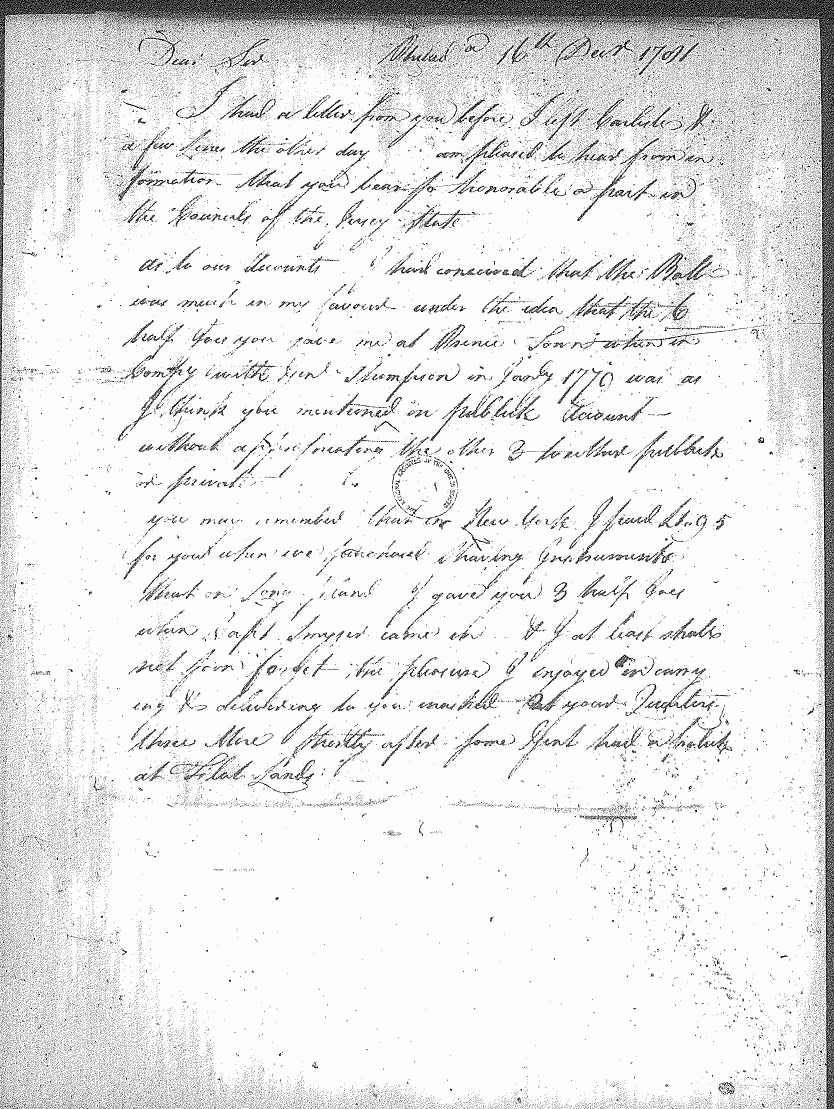 Dear Sir Philad a 16th Decr 1781
I had a letter from you before I left Carlisle &
a few Lines the other day am pleased to hear from in
formation that you bear so honorable a part in
the Councils of the Jersey State
as to our Accounts I had conceived that the Balle
was much in my favour under the idea that the 6
half Joes you gave me at Prince Town when in
Compy with Genl Thompson in Jany 177 was as
I think you mentioned on publick Account
without appropriating the other 3 whether publick
or private
you may remember that in New York I paid 95
for you when we purchased Shaving Instruments
that on Long Island I gave you 3 half Joes
when Capt Smyser came in & I at least shall
not soon forget the pleasure I enjoyed in carry
ing & delivering to you at your Quarters
three More shortly after some Gent had a
at Flat Lands